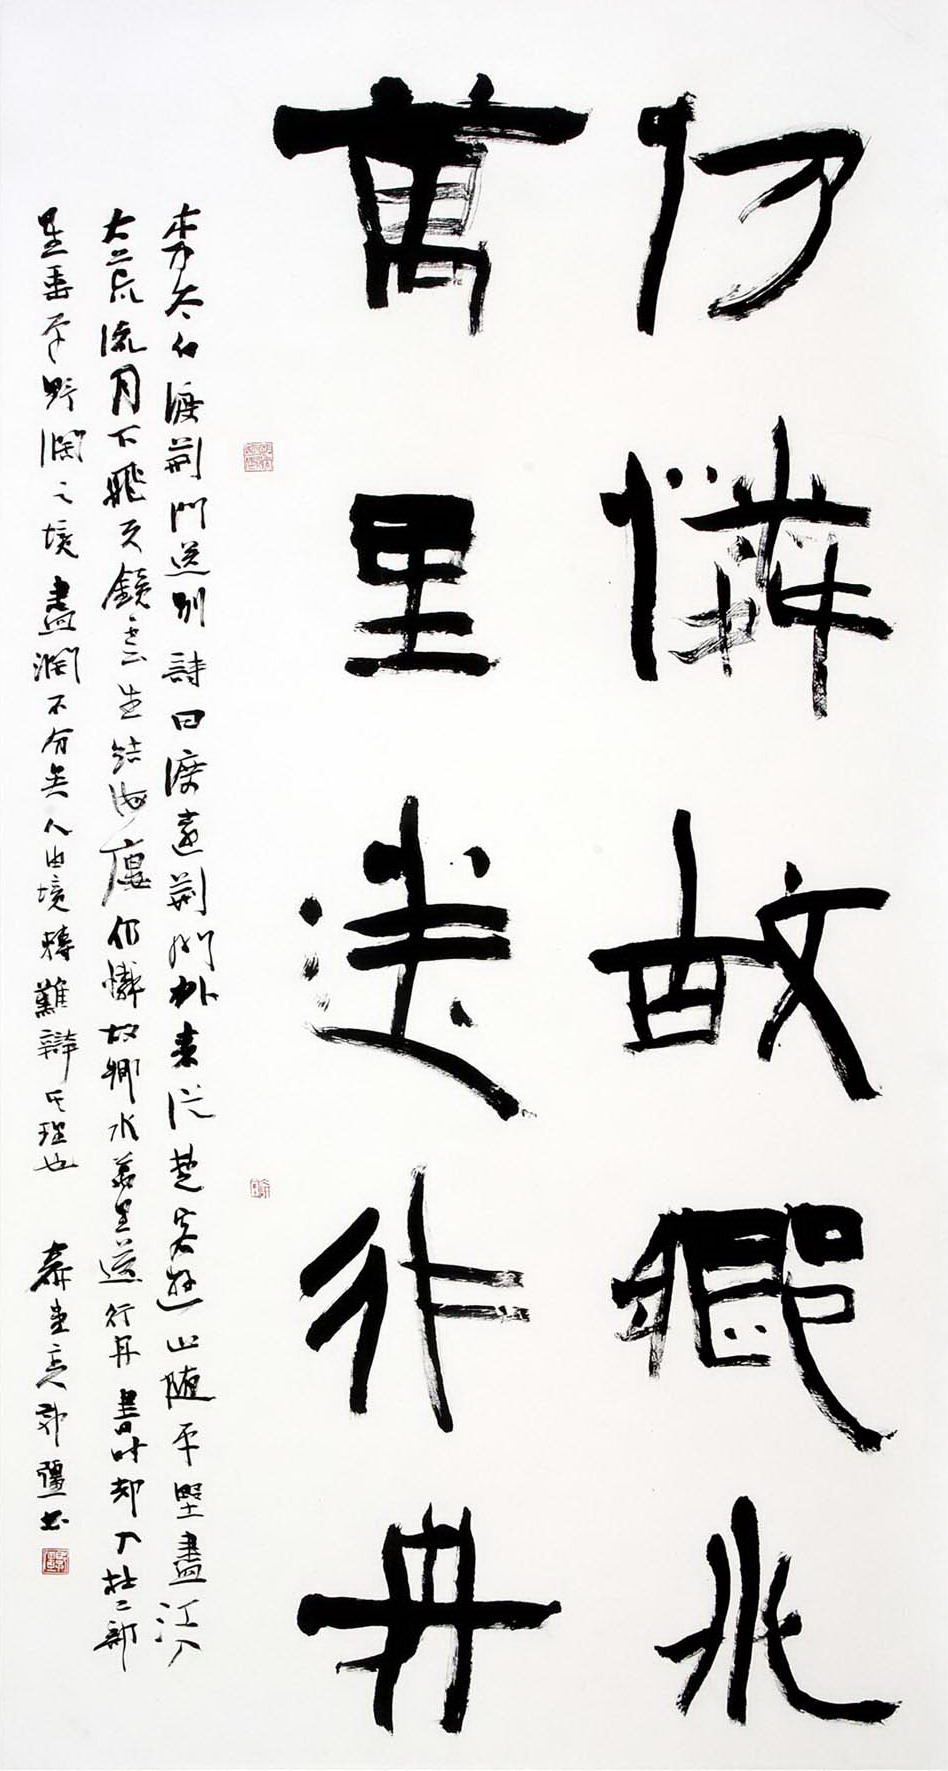 仍憐故鄉水
萬里送行舟
李太白渡荊門送別詩曰渡遠荊門外來從楚客遊山隨平野盡江入
大荒流月下飛天鏡雲生結海樓仍憐故鄉水萬里送行舟書時却入杜工部
星垂平野闊之境盡闊不分矣人由境轉難辯其理也 郭疆書